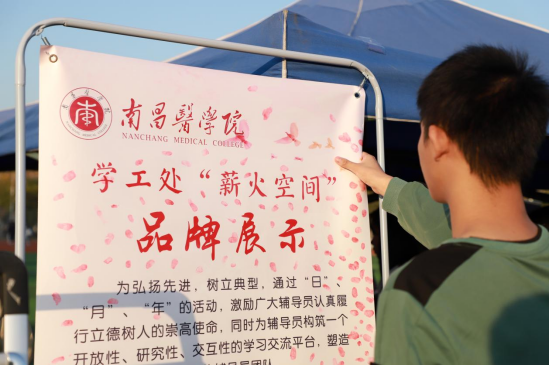 南昌醫學院
NANCHANG MEDICAL COLLEGE
学工处“薪火空间”
品牌展示
为弘扬先进，树立典型，通过“日”、
“月”、“年”的活动，激励广大辅导员认真履
行立德树人的崇高使命，同时为辅导员构筑一个
开放性、研究性、交互性的学习交流平台，塑造